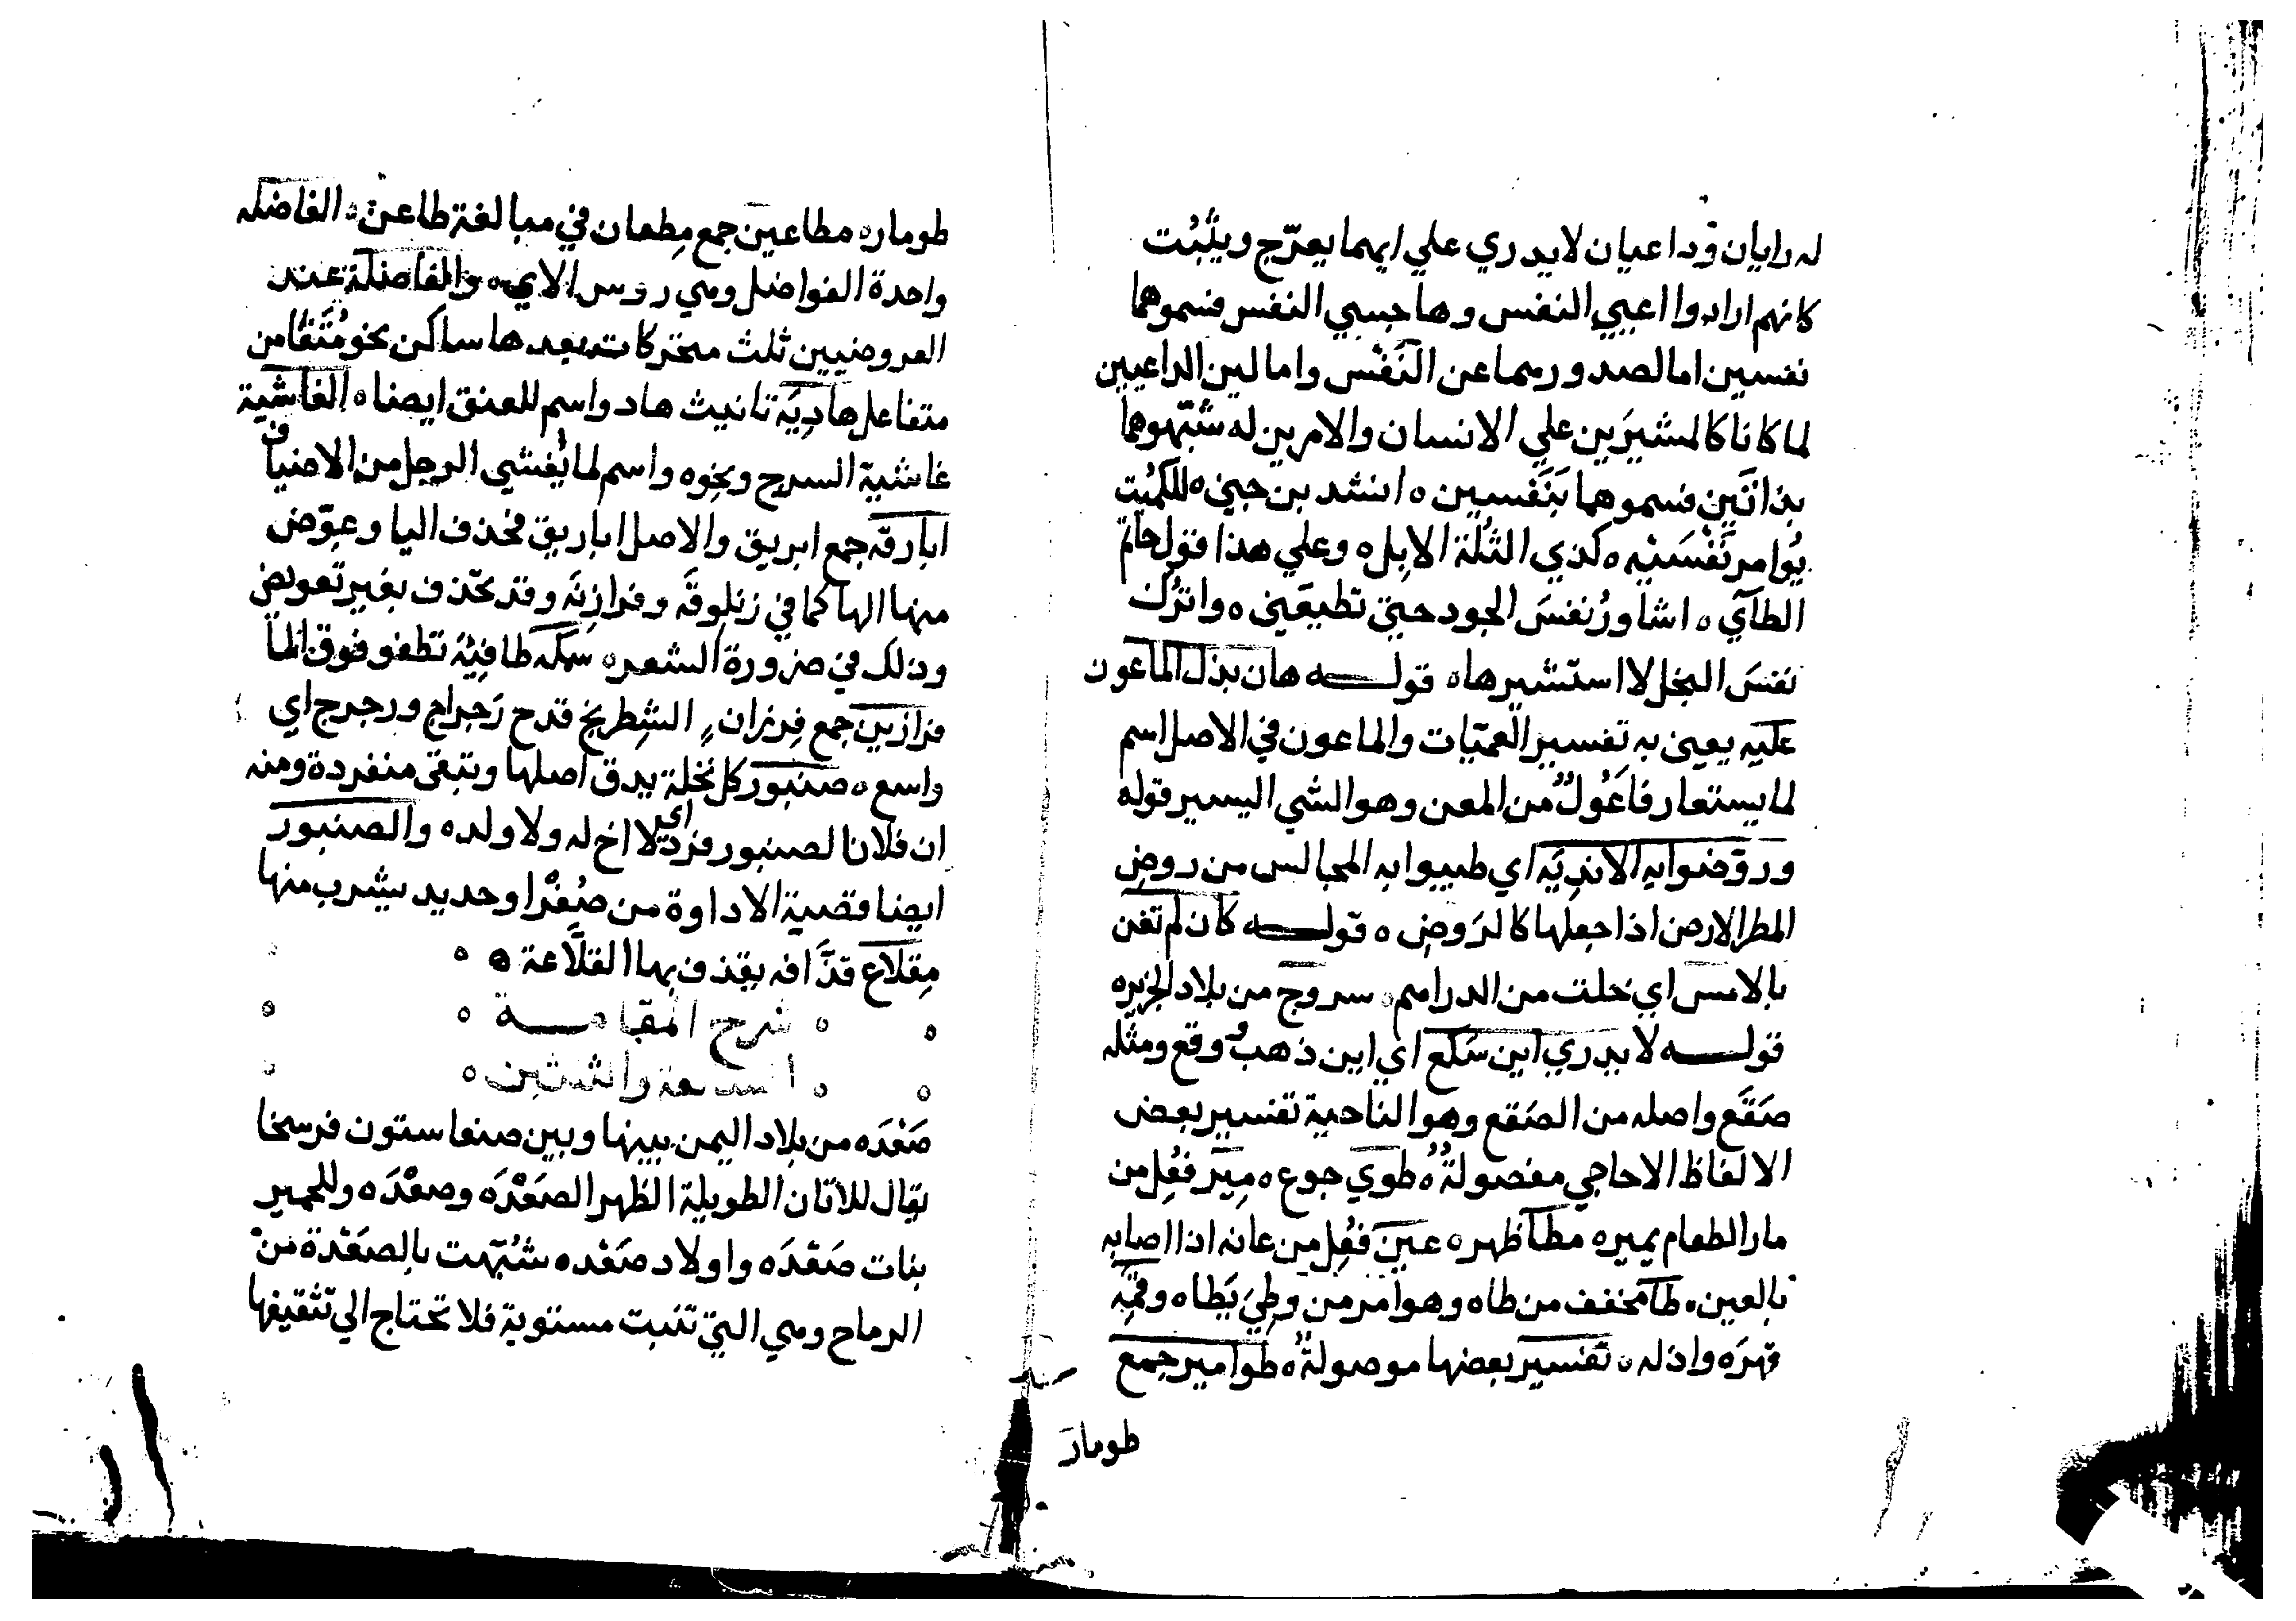 له رايان وداعيان لا يدري علي ايهما يعرّج ويثبُت
كانهم ارادوا اعيي النفس وهاجسي النفس فسموهما
نفسين اما لصدورهما عن النَفْس واما لين الداعيين
لما كانا كالمشيرَين علي الانسان والامرين له شبّهوهما
بذاتَين فسموهما بنَفسين ه انشد بن جني ه للكميْت
يُوامر نَفْسَيْه ه كذي الثُلّة الابل ه وعلي هذا قول حاتم
الطآي ه اشاورُ نفسَ الجود حتي تطيعَني ه واترُك
نفسَ البخل لا استشيرها ه قولـــه هان بذل الماعون
عليه يعني به تفسير العميّات والماعون في الاصل اسم
لما يستعار فاعُولٌ من المعن وهو الشي اليسير قوله
وروّضوا به الاندِيَه اي طيبوا به المجالس من روض
المطر الارض اذا جعلها كالرَوض ه قولـــه كان لم تغن
بالامس اي خلت من الدراهم ه سروج من بلاد الجزيره
قولـــه لا يدري اين سَكَع اي اين ذهب ووقع ومثله
صَقَع واصله من الصَقع وهو الناحية تفسير بعض
الالفاظ الاحاجي مفصولةً ه طوَي جوع ه مِيرَ فعُل من
مار الطعام يميره مطا ظهر ه عينَ فعُل من عانه اذا اصابه
بالعين ه طا مخفف من طاه وهو امر من وطِيَ يَطاه وقمَه
قهرَه واذله ه تفسير بعضها موصولةً ه طوامير جمع
طومار
طومار ه مطاعين جمع مِطعان في مبالغة طاعن ه الفاضله
واحدة الفواضل وهي روس الاي ه والفاضلة عند
العروضيين ثلث متحركات بعدها ساكن نحو مُتَفا من
متفاعل هادِيَة تانيث هاد واسم للعنق ايضا ه الغاشية
غاشية السرج ونحوه واسم لما يُغشي الرجل من الاضياف
ابارقه جمع ابريق والاصل اباريق فحذف اليا وعوّض
منها الها كما في زنلوقَه وفرازنَه وقد تحذف بغير تعويض
وذلك في ضرورة الشعر ه سمكه طافِيَة تطفو فوق الما
فرازين جمع فِرزان الشِطرنج قدح رَجراج ورجرج اي
واسع ه صنبور كل نخلة يدق اصلها وتبقي منفردة ومنه
ان فلانا لصنبور فرد اي لا اخ له ولا ولده والصنبور
ايضا قصبة الاداوة من صُفْر او حديد يشرب منها
مِقلاع قذّافه يقذف بها القلّاعة ه ه
شرح المقامـــة
السابعة والثلثين ه
صَعْدَه من بلاد اليمن بينها وبين صنعا ستون فرسخا
يقال للاتان الطويلة الظهر الصَعْدَه وصعْدَه وللحمير
بنات صَعْدَه واولاد صَعْده شُبّهت بالصَعْدة منْ
الرماح وهي التي تنبت مستوية فلا تحتاج الي تثقيفها